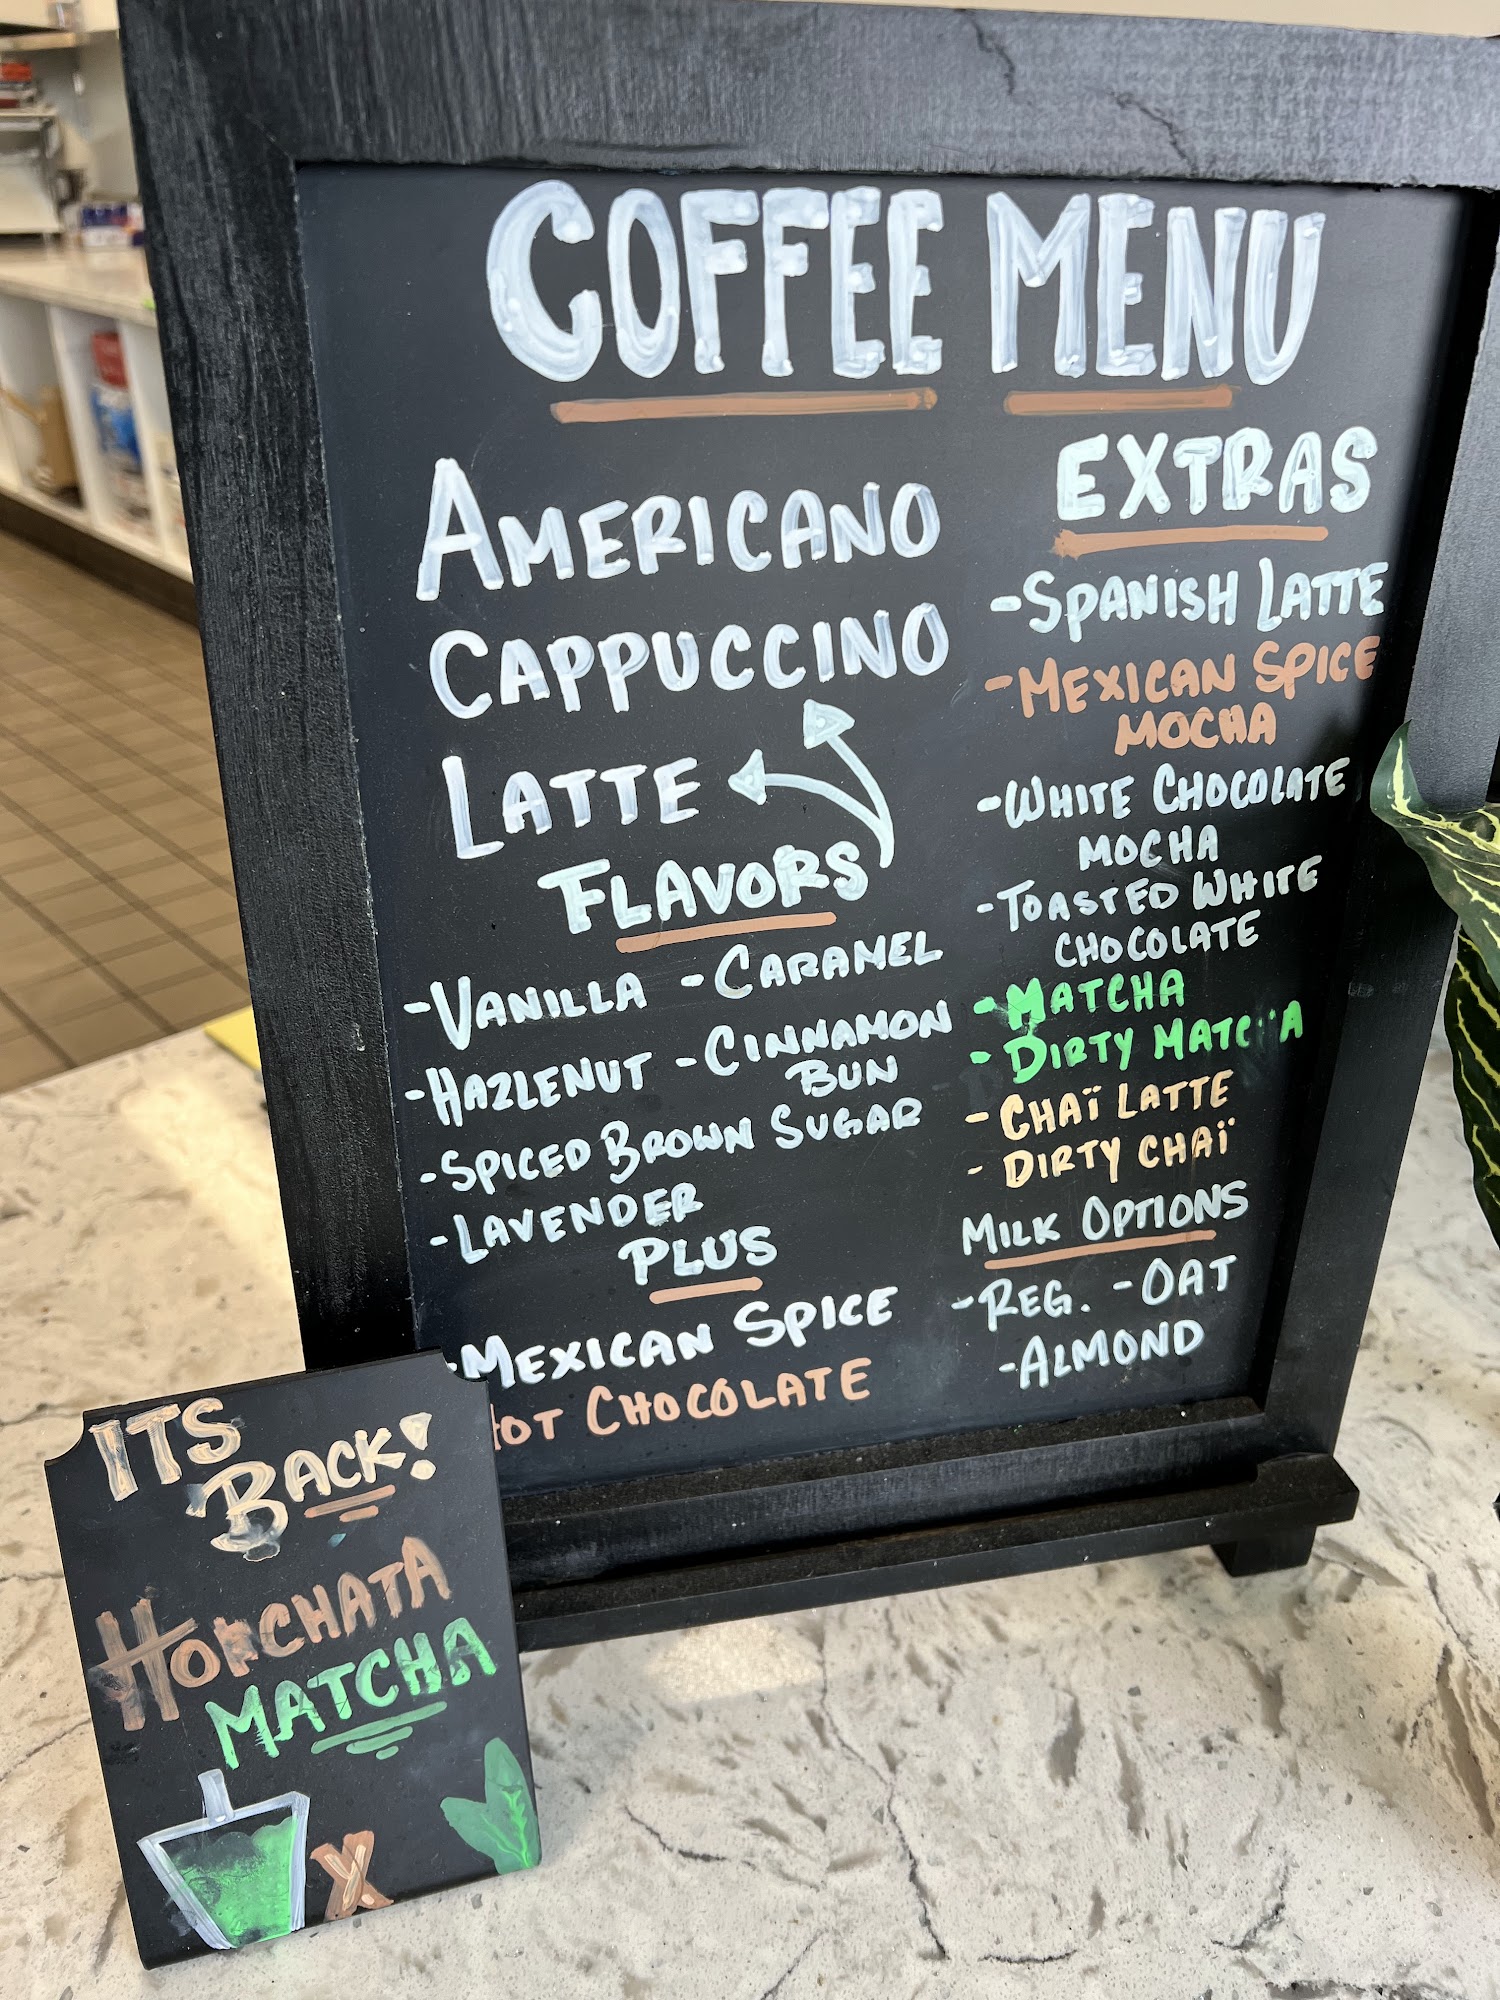 COFFEE MENU
AMERICANO
CAPPUCCINO
LATTE
FLAVORS
-VANILLA -CARAMEL
-HAZLENUT -CINNAMON
BUN
-SPICED BROWN SUGAR
-LAVENDER
PLUS
-MEXICAN SPICE
HOT CHOCOLATE
EXTRAS
-SPANISH LATTE
-MEXICAN SPICE
MOCHA
-WHITE CHOCOLATE
MOCHA
-TOASTED WHITE
CHOCOLATE
-MATCHA
-DIRTY MATCHA
-CHAÏ LATTE
-DIRTY CHAÏ
MILK OPTIONS
-REG. -OAT
-ALMOND
ITS
BACK!
HORCHATA
MATCHA